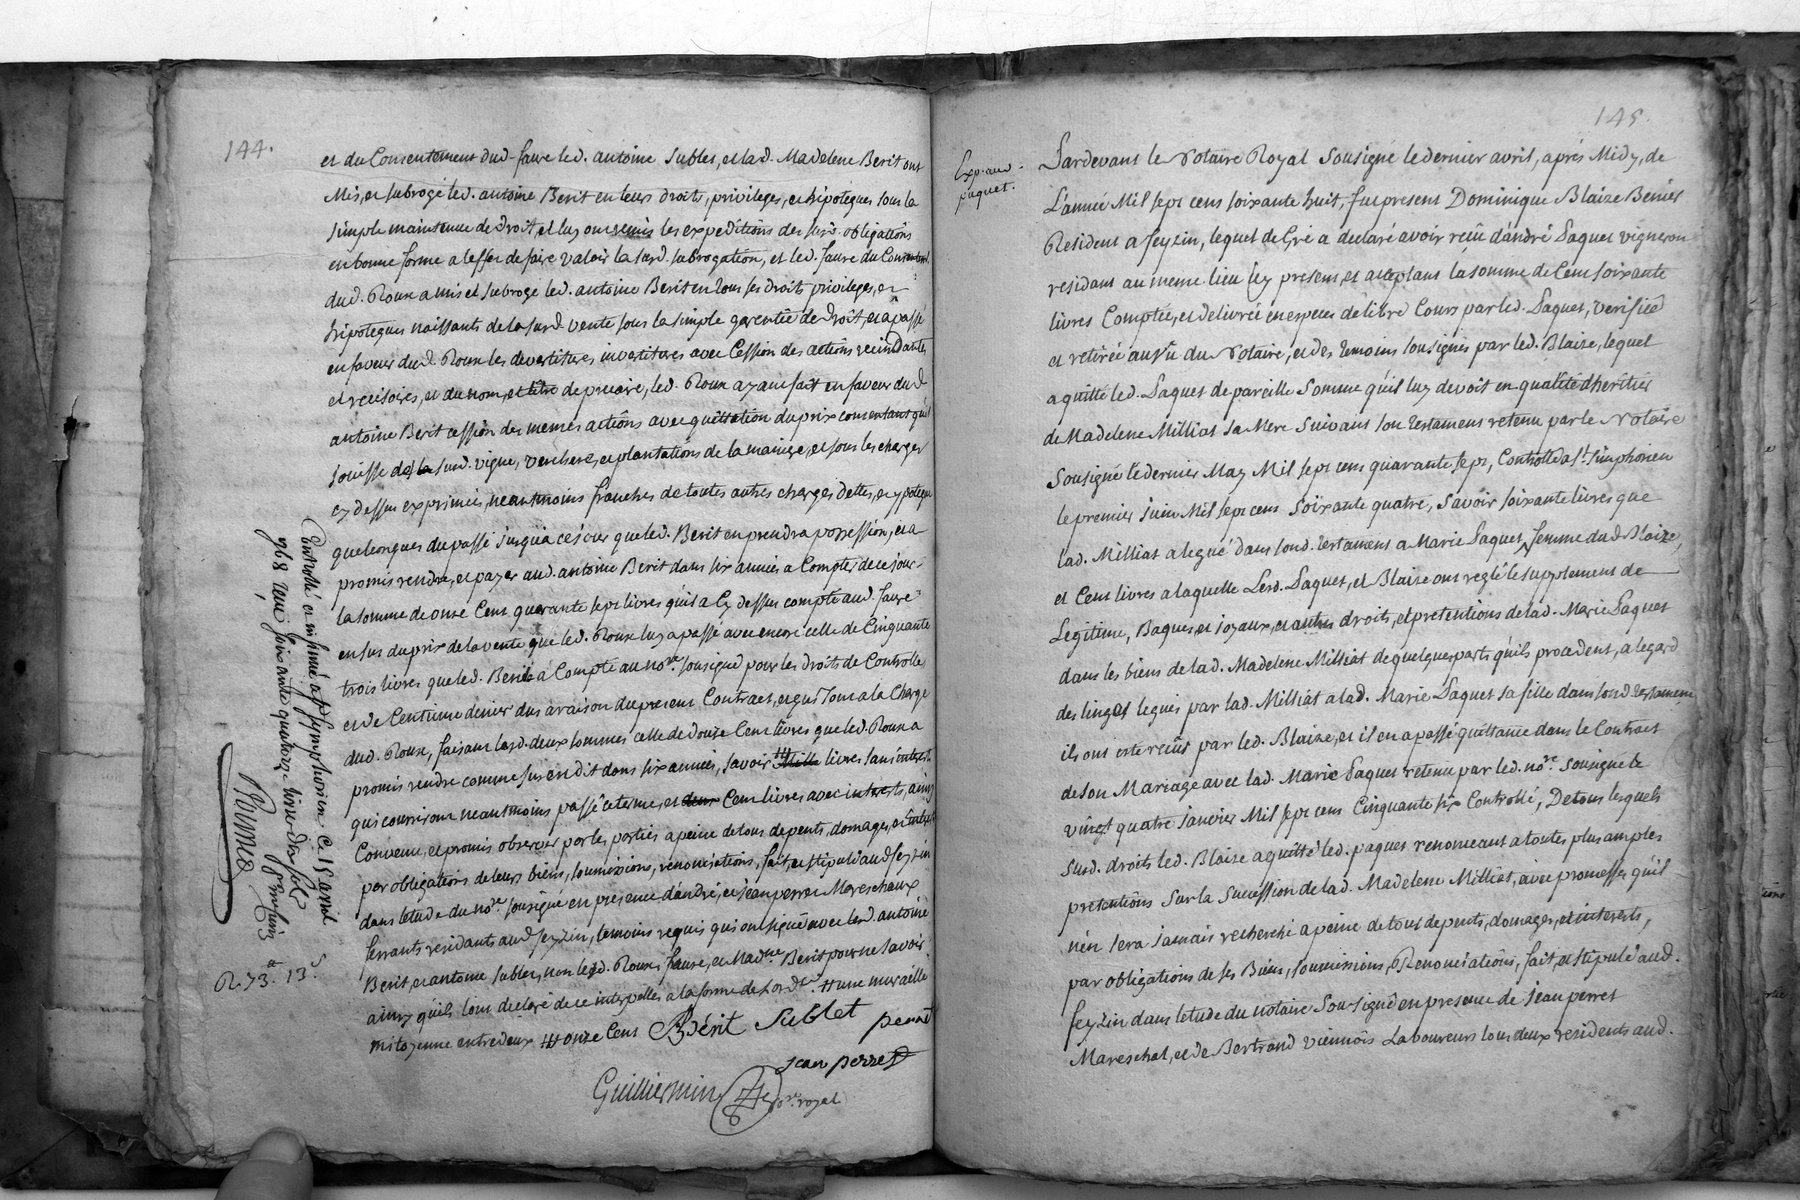 144.
et du Consentement dud. faure led. antoine Sublet, et lad. Madelene Berit ont
Mis, et subrogé led. antoine Berit en leurs droits, privileges, et hipoteques sous la
simple maintenue de droit, et luy ont remis les expéditions des susd. obligations
en bonne forme a leffet de faire valoir la susd. subrogation, et led. faure du Consentement
dud. Roux a mis et subrogé led. antoine Berit en tous ses droits privileges, et
hipoteques naissants de la susd. vente sous la simple garentie de droit, et a passé
en faveur dud. Roux les devestitures investitures avec Cession des actions rescindantes
et rescisoires, et du nom, et titre de precaire, led. Roux ayant fait en faveur dud.
antoine Berit cession des memes actions avec quittation du prix consentant quil
jouisse de la susd. vigne, verchere, et plantations de la maniere, et sous les charges
cy dessus exprimées, neantmoins franches de toutes autres charges dettes, et ypoteques
quelconques du passé jusqua ce jour que led. Berit en prendra possession, et a
promis rendre, et payer aud. antoine Berit dans six années a Compter de ce jour
la somme de onze Cent quarante sept livres quil a Cy dessus compté aud. faure
en sus du prix de la vente que led. Roux luy a passé avec encore celle de Cinquante
trois livres que led. Berit a Compté au nore. sousigné pour les droits de Controlle
et de Centiéme denier dus a raison du present Contract, et qui sont a la Charge
dud. Roux, faisant lesd. deux sommes celle de douze Cent livres que led. Roux a
promis rendre comme sus est dit dans six années, savoir livres sans interests
qui courriront neantmoins passé ce terme, et Cent livres avec interests, ainsy
Convenu, et promis observer par les parties a peine de tous depents, domages, et interests
par obligations de leurs biens, soumissions, rénonciations, fait, et stipulé aud. feyzin
dans letude du nore. sousigné en presence dandré, et jean perret Mareschaux
ferrants residants aud. feyzin, temoins requis qui ont signé avec lesd. antoine
Berit, et antoine sublet, non lesd. Roux, faure, et Madne. Berit pour ne savoir
ainsy quils lont declaré de ce interpellés a la forme de Lordce. # une muraille
mitoyenne entredeux ## onze Cent ABérit Sublet perret
jean perret
Guilliermin nore. royal
Controllé et insinué a St Symphorien ce 15 avril
1768 reçu soixante quatorze livres dix sols
R. 73. 13s.
145.
Exp. aud.
paquet.
Pardevant le Notaire Royal Sousigné le dernier avril, aprés Midy, de
L'année Mil sept cent soixante huit, fut present Dominique Blaize Benier
Resident a feyzin, lequel de Gré a declaré avoir reçû d'andré Paquet vigneron
residant au meme lieu icy present, et acceptant la somme de Cent soixante
livres Comptée, et delivrée en especes de libre Cours par led. Paquet, vérifiée
et retirée au vû du Notaire, et des temoins sousignés par led. Blaize, lequel
a quitté led. Paquet de pareille Somme qu'il luy devoit en qualité dheritier
de Madelene Milliat sa Mere Suivant son testament retenu par le Notaire
Sousigné le dernier May Mil sept cent quarante sept, Controllé a St. simphorien
le premier juin Mil sept cent Soixante quatre, Savoir soixante livres que
lad. Milliat a legué dans sond. testament a Marie Paquet, femme dud. Blaize,
et Cent livres a laquelle Lesd. Paquet, et Blaize ont reglé le supplement de
Legitime, Bagues, et joyaux, et autres droits, et pretentions de lad. Marie Paquet
dans les biens de lad. Madelene Milliat de quelques parts qu'ils procedent, a legard
des linges legués par lad. Milliat a lad. Marie Paquet sa fille dans sond. testament
ils ont este reçûs par led. Blaize, et il en a passé quittance dans le Contract
de son Mariage avec lad. Marie Paquet retenu par led. nore. Sousigné le
vingt quatre janvier Mil sept cent Cinquante six Controllé, De tous lesquels
susd. droits led. Blaize a quitté led. paquet renonceant a toutes plus amples
pretentions Sur la Succession de lad. Madelene Milliat, avec promesse qu'il
n'en sera jamais recherché a peine de tous depents, domages, et interests,
par obligations de ses Biens, soumissions, Renonciations, fait, et stipulé aud.
feyzin dans letude du notaire Sousigné en presence de jean perret
Mareschal, et de Bertrand viennois Laboureur tous deux residents aud.